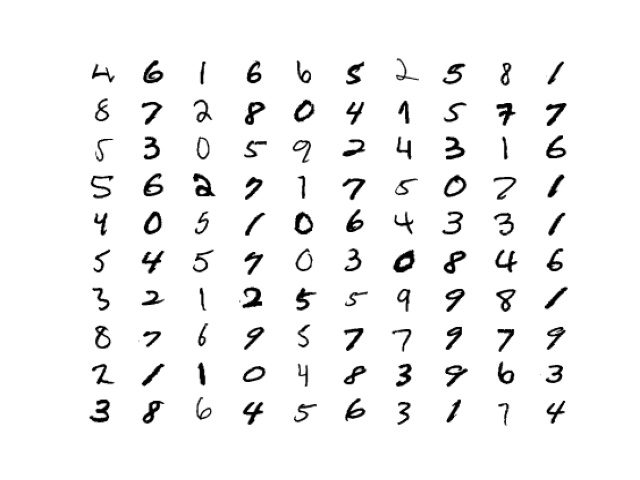 4 6 1 6 6 5 2 5 8 1
8 7 2 8 0 4 1 5 7 7
5 3 0 5 9 2 4 3 1 6
5 6 2 7 1 7 5 0 7 1
4 0 5 1 0 6 4 3 3 1
5 4 5 7 0 3 0 8 4 6
3 2 1 2 5 5 9 9 8 1
8 7 6 9 5 7 7 9 7 9
2 1 1 0 4 8 3 9 6 3
3 8 6 4 5 6 3 1 7 4